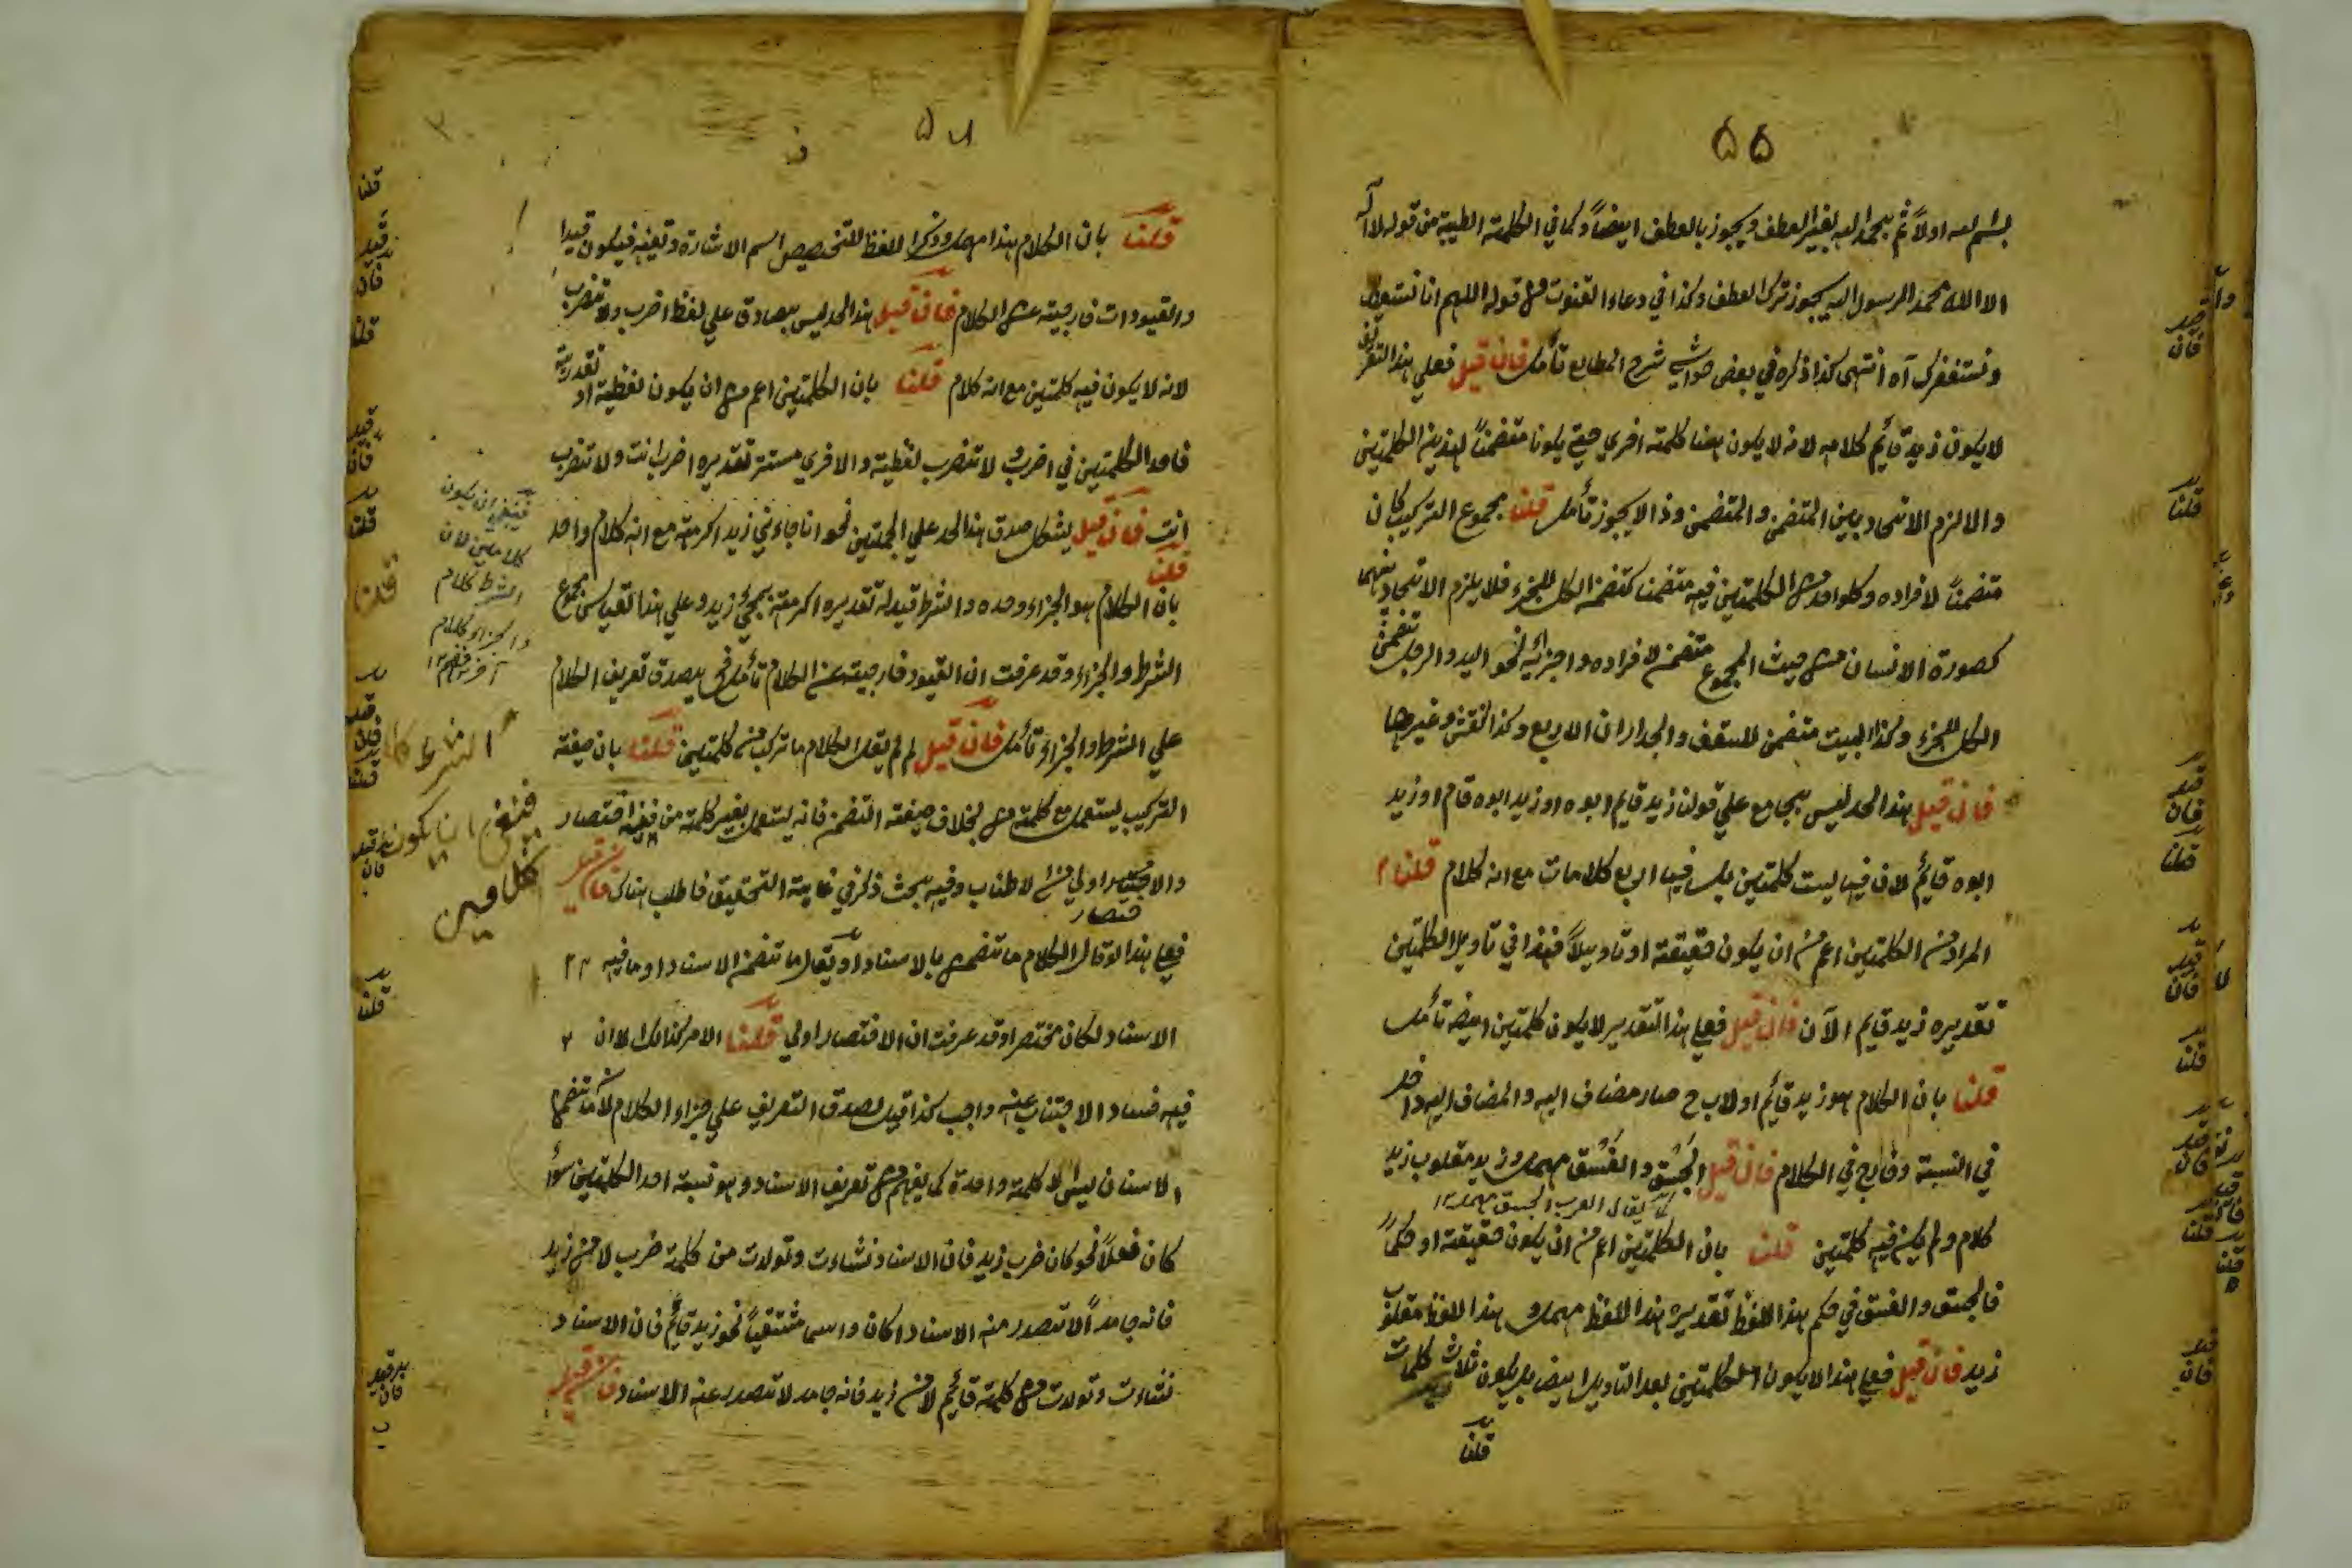 ۵۵
بسم الله اولاً ثم بحمد الله بغير العطف ويجوز بالعطف ايضاً وكما في الكلمة الطيبة من قوله لا آله
الا الله محمد الرسول الله يجوز ترك العطف وكذا في دعاء القنوت من قوله اللهم انا نستعينك
ونستغفرك آه انتهى كذا ذكره في بعض حواشي شرح المطالع تأمل فان قيل فعلي هذا التعريف
لا يكون زيد قايم كلامه لانه لا يكون هنا كلمة اخرى حتى يكونا متضمناً لهذين الكلمتين
والا لزم الاتحاد بين المتضمن والمتضمن وذا لا يجوز تأمل قلنا مجموع التركيب كان
متضمناً لافراده وكلواحد من الكلمتين فيه متضمنا كتضمن الكل للجزء فلا يلزم الاتحاد بينهما
كصورة الانسان من حيث المجموع متضمن لافراده واجزائه نحو اليد والرجل تتضمن
الكل للجزء وكذا البيت متضمن للسقف والجداران الاربع وكذا النقش وغيرها
فان قيل هذا الحد ليس بجامع علي قولنا زيد قايم ابوه او زيد ابوه قام او زيد
ابوه قائم لان فيها ليست كلمتين بل فيها اربع كلامات مع انه كلام قلنا
المراد من الكلمتين اعم من ان يكون حقيقة او تاويلاً فهذا في تاويل الكلمتين
تقديره زيد قايم الآن فان قيل فعلي هذا التقدير لا يكون كلمتين ايضه تأمل
قلنا بان الكلام هو زيد قائم اولاب ح صار مضاف اليه والمضاف اليه داخل
في النسبة وخارج في الكلام فان قيل الجسق والفسق مهمل وزيد مقلوب زيد
كلام ولم يكن فيه كلمتين قلنا بان الكلمتين اعم من ان يكون حقيقة او حكماً
فالجسق والفسق في حكم هذا اللفظ تقديره هذا اللفظ مهمل و هذا اللفظ مقلوب
زيد فان قيل فعلي هذا لا يكون الكلمتين بعد التاويل ايضه بل يكون ثلاث كلمات
قلنا
قلنا بان الكلام هذا مهمل وذكر اللفظ للتخصيص اسم الاشارة وتعينه فيكون قيدا
والقيودات خارجية عن الكلام فان قيل هذا الحد ليس بصادق علي لفظ اضرب ولا تضرب
لانه لا يكون فيه كلمتين مع انه كلام قلنا بان الكلمتين اعم من ان يكون لفظية او تقديرية
فاحد الكلمتين في اضرب و لا تضرب لفظية والاخرى مستتر تقديره اضرب انت ولا تضرب
انت فان قيل يشكل صدق هذا الحد علي الجملتين نحو انا جاءني زيد اكرمته مع انه كلام واحد
قلنا
بان الكلام هو الجزاء وحده والشرط قيد له تقديره اكرمته بمجئ زيد وعلي هذا القياس مجموع
الشرط والجزاء وقد عرفت ان القيود خارجية عن الكلام تأمل فح يصدق تعريف الكلام
علي الشرط والجزاء تأمل فان قيل لم لم يقل الكلام ما تركب من كلمتين قلنا بان صيغة
التركيب يستعمل مع كلمة من بخلاف صيغة التضمن فانه يستعمل بغير كلمة من ففيه اختصار
والاختصار اولي من لاطناب وفيه بحث ذكر في غاية التحقيق فاطلب هناك فان قيل
فعلي هذا لو قال الكلام ما تضمن بالاسناد او يقال ما تتضمن الاسناد او ما فيه
الاسناد لكان مختصرا وقد عرفت ان الاختصار اولي قلنا الامر كذالك لا ان
فيه فساد الاجتناب عنه واجب كذا قيل لصدق التعريف علي جزاء الكلام
الاسناد ليس الا كلمة واحدة كما يفهم من تعريف الاسناد وهو نسبة احد الكلمتين سواء
كان فعلاً نحو كان ضرب زيد فان الاسناد نشاءت وتولدت من كلمة ضرب لا من زيد
فانه جامداً لا تصدر منه الاسناد اكان واسما مشتقياً نحو زيد قائم فان الاسناد
نشاءت وتولدت من كلمة قائم لا من زيد فانه جامد لا تصدر عنه الاسناد فان قيل
فينبغي ان يكون
كلامين لان
الشرط كلام
والجزاء كلام
آخر
الشرط كا
فينبغي ان يكون
كلامين